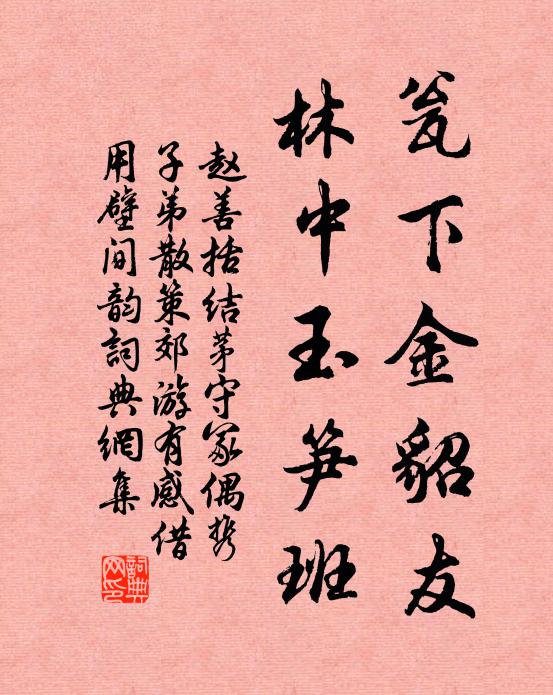 瓮下金貂友
林中玉笋班
赵善括结茅守冢偶携
子弟散策郊游有感借
用壁间韵词典網集
詞典
网印